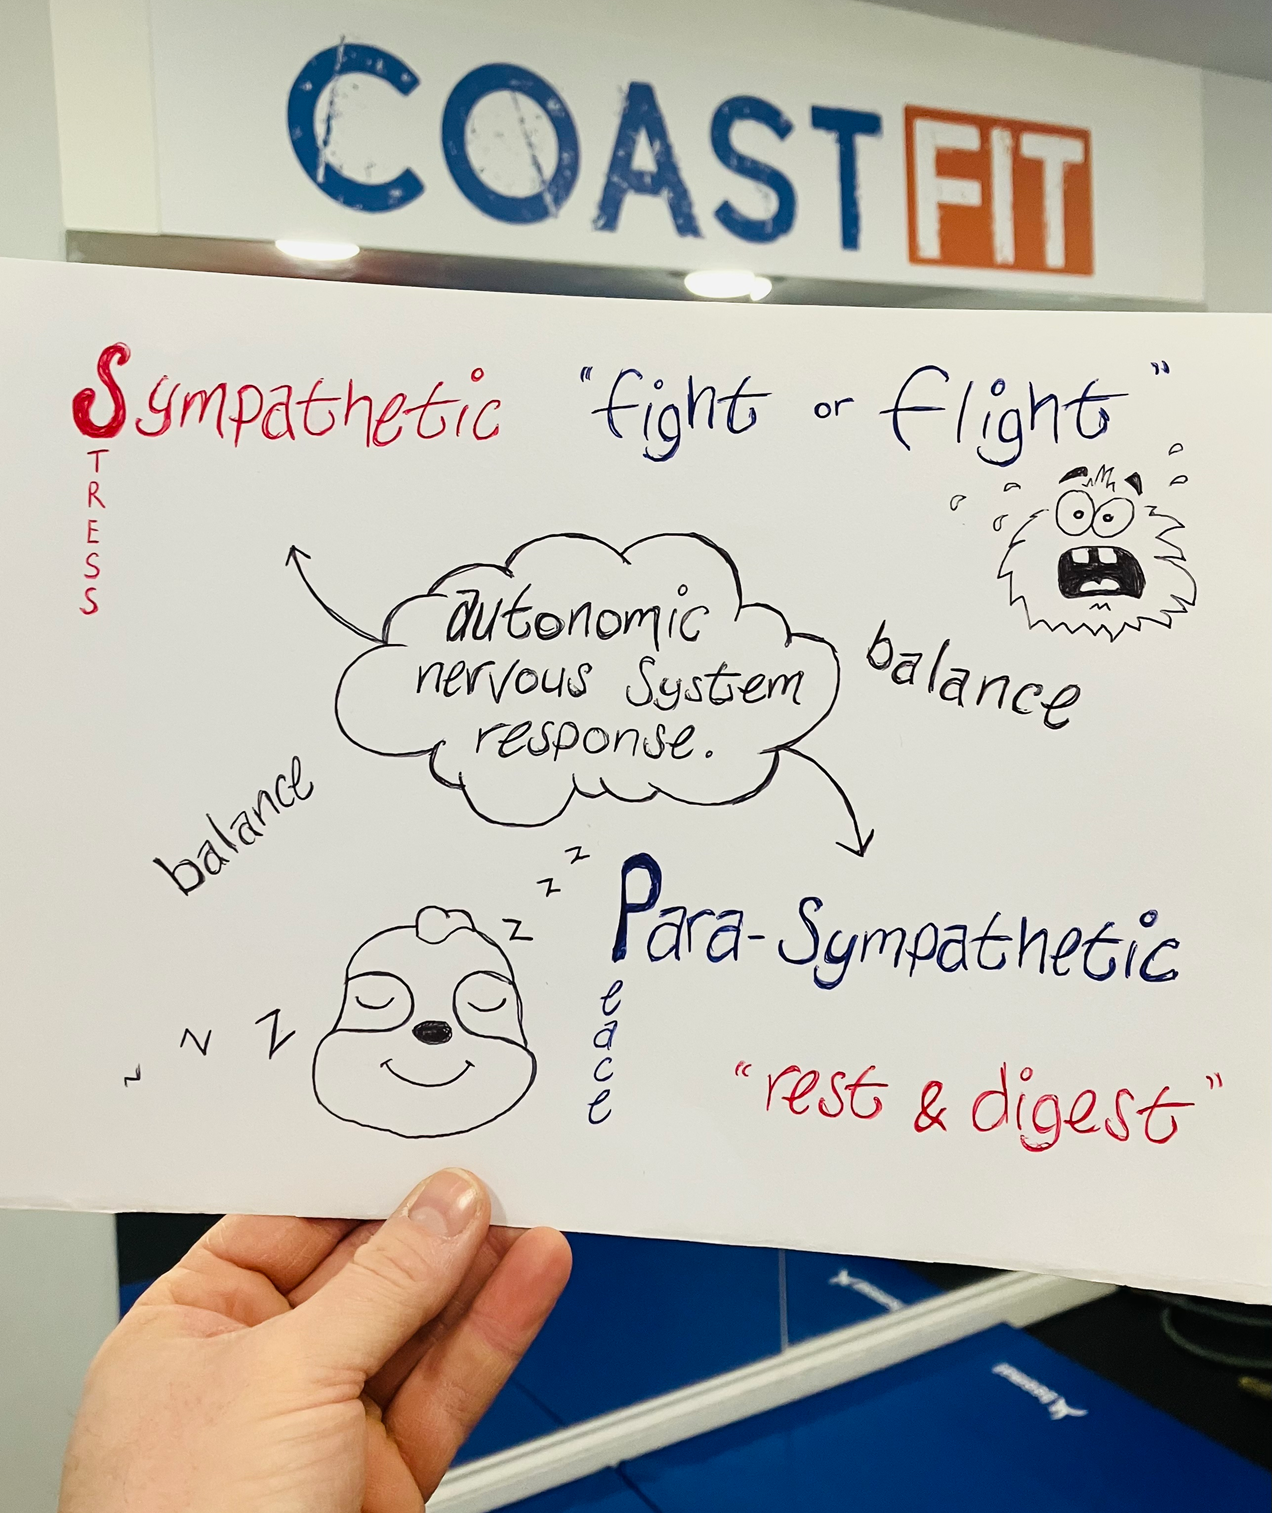 COASTFIT
Sympathetic "fight or flight"
TRESS
autonomic
nervous System
response.
balance
balance
z z z
Para-Sympathetic
eace
z z z
"rest & digest"